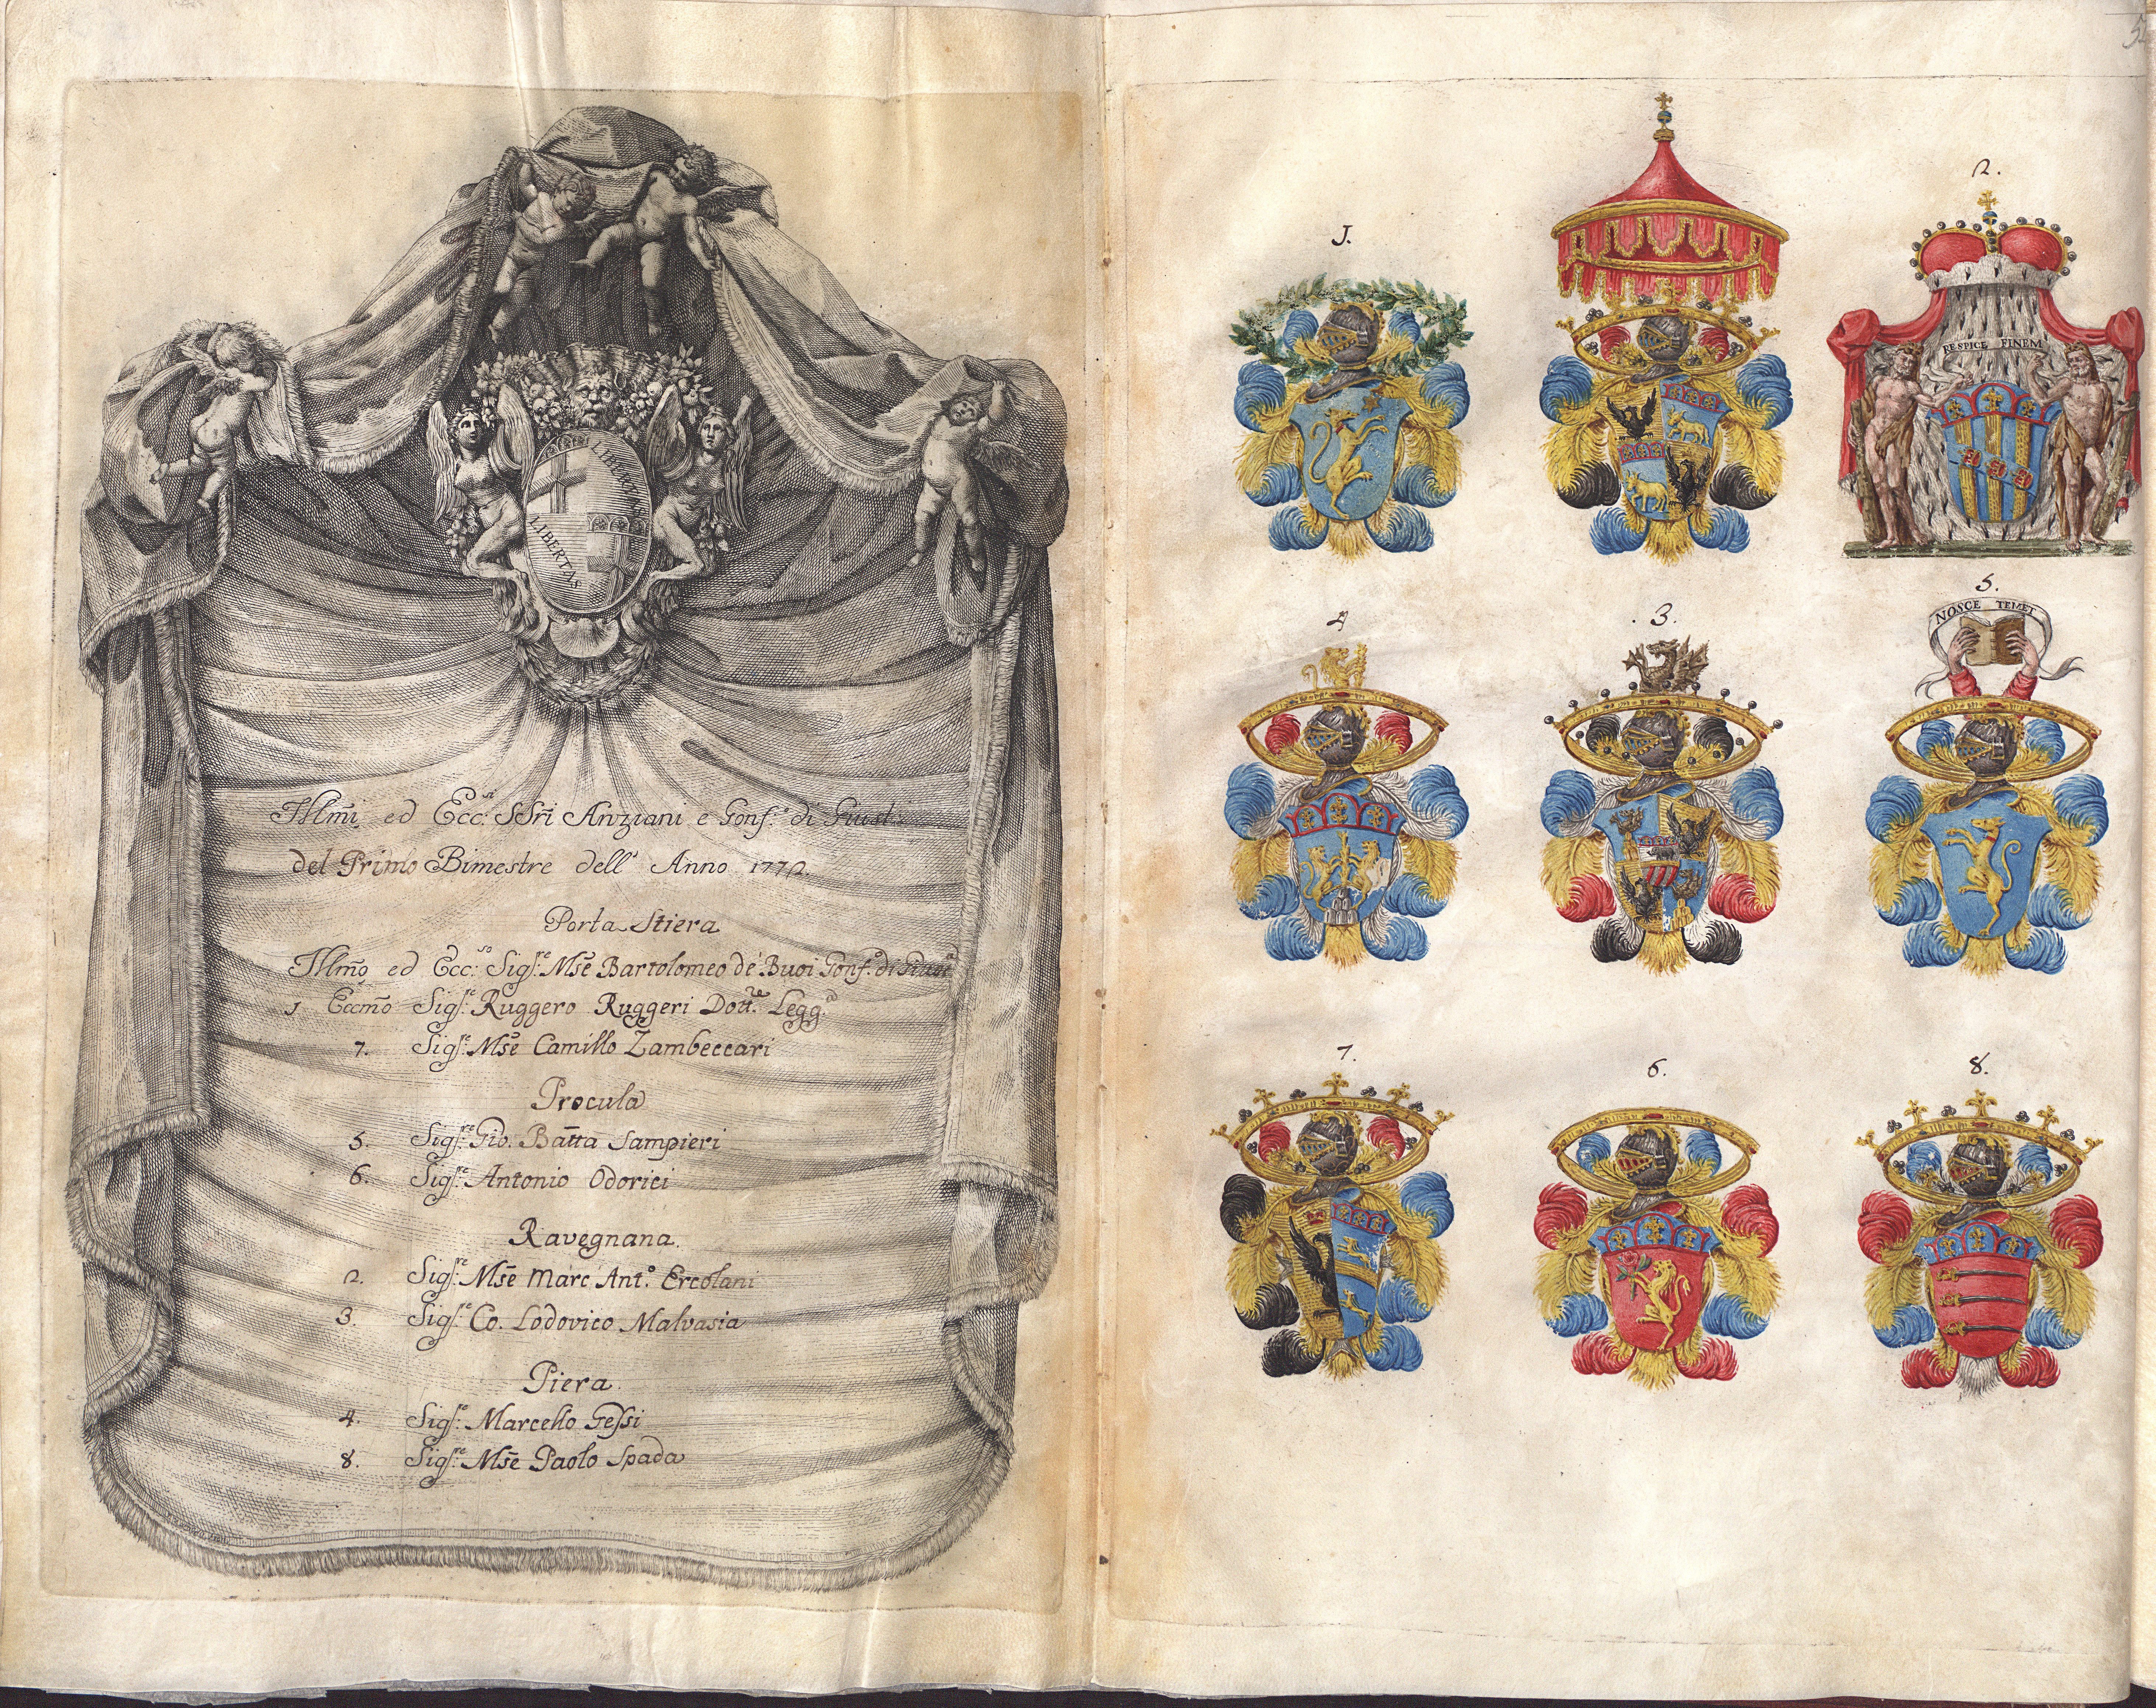 LIBERTAS
LIBERTAS
Illm̃i ed Ecc:si SSri Anziani e Gonf:e di Giust:
del Primo Bimestre dell' Anno 1772.
Porta Stiera
Illm̃o ed Ecc:so Sigr:e Mse Bartolomeo de' Buoi Gonf:e di Giust:a
1 Eccm̃o Sigr:e Ruggero Ruggeri Dott:re Legg:a
7. Sigr:e Mse Camillo Zambeccari
Procula
5. Sigr:e Gio. Batta Sampieri
6. Sigr:e Antonio Odorici
Ravegnana.
2. Sigr:e Mse Marc' Ant:o Ercolani
3. Sigr:e Co. Lodovico Malvasia
Piera.
4. Sigr:e Marcello Gessi
8. Sigr:e Mse Paolo Spada
1.
2.
RESPICE FINEM
4
.3.
5.
NOSCE TEMET
7.
6.
8.